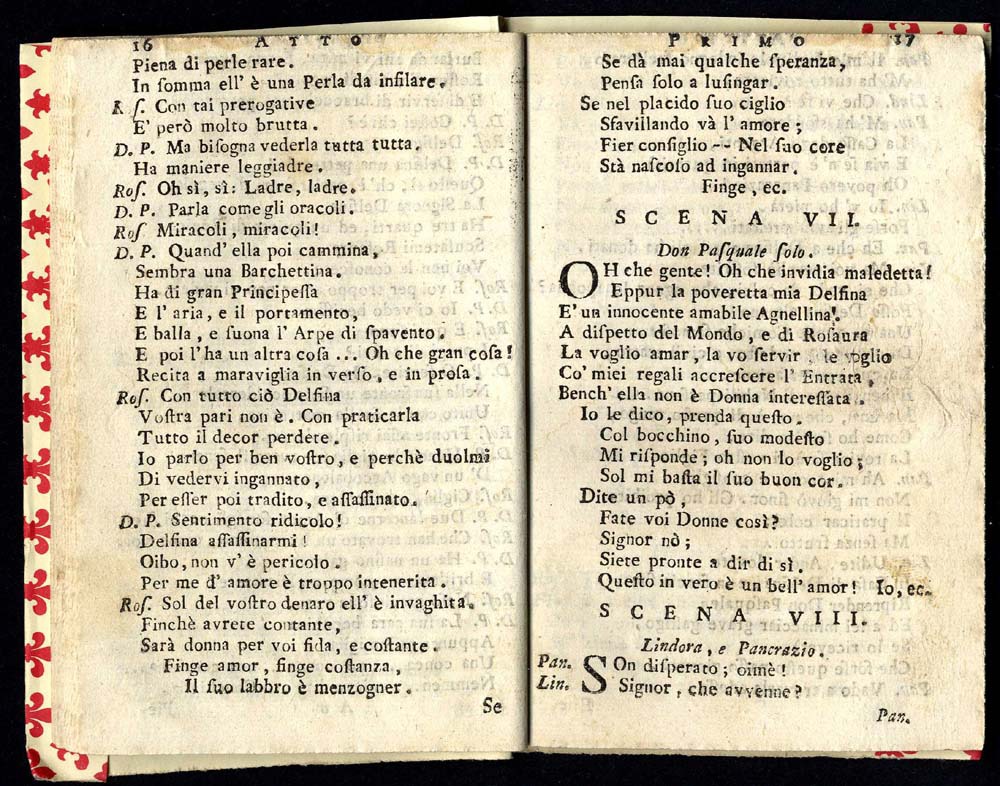 16 ATTO
Piena di perle rare.
In somma ell' è una Perla da infilare.
Roſ. Con tai prerogative
E' però molto brutta.
D. P. Ma biſogna vederla tutta tutta.
Ha maniere leggiadre.
Roſ. Oh sì, sì: Ladre, ladre.
D. P. Parla come gli oracoli.
Roſ Miracoli, miracoli!
D. P. Quand' ella poi cammina,
Sembra una Barchettina.
Ha di gran Principeſſa
E l' aria, e il portamento,
E balla, e ſuona l' Arpe di ſpavento.
E poi l'ha un altra coſa ... Oh che gran coſa!
Recita a maraviglia in verſo, e in proſa.
Roſ. Con tutto ciò Delfina
Voſtra pari non è. Con praticarla
Tutto il decor perdete,
Io parlo per ben voſtro, e perchè duolmi
Di vedervi ingannato,
Per eſſer poi tradito, e aſſaſſinato.
D. P. Sentimento ridicolo!
Delfina aſſaſſinarmi!
Oibo, non v' è pericolo.
Per me d' amore è troppo intenerita.
Roſ. Sol del voſtro denaro ell' è invaghita.
Finchè avrete contante,
Sarà donna per voi fida, e coſtante.
Finge amor, finge coſtanza,
Il ſuo labbro è menzogner.
Se
PRIMO 17
Se dà mai qualche ſperanza,
Penſa ſolo a luſingar.
Se nel placido ſuo ciglio
Sfavillando và l' amore;
Fier conſiglio -- Nel ſuo core
Stà naſcoſo ad ingannar.
Finge, ec.
SCENA VII.
Don Paſquale ſolo.
OH che gente! Oh che invidia maledetta!
Eppur la poveretta mia Delfina
E' un innocente amabile Agnellina!
A diſpetto del Mondo, e di Roſaura
La voglio amar, la vo ſervir, le voglio
Co' miei regali accreſcere l' Entrata,
Bench' ella non è Donna intereſſata.
Io le dico, prenda queſto.
Col bocchino, ſuo modeſto
Mi riſponde; oh non lo voglio;
Sol mi baſta il ſuo buon cor.
Dite un pò,
Fate voi Donne così?
Signor nò;
Siete pronte a dir di sì.
Queſto in vero è un bell' amor! Io, ec.
SCENA VIII.
Lindora, e Pancrazio.
Pan. SOn diſperato; oimè!
Lin. Signor, che avvenne?
Pan.